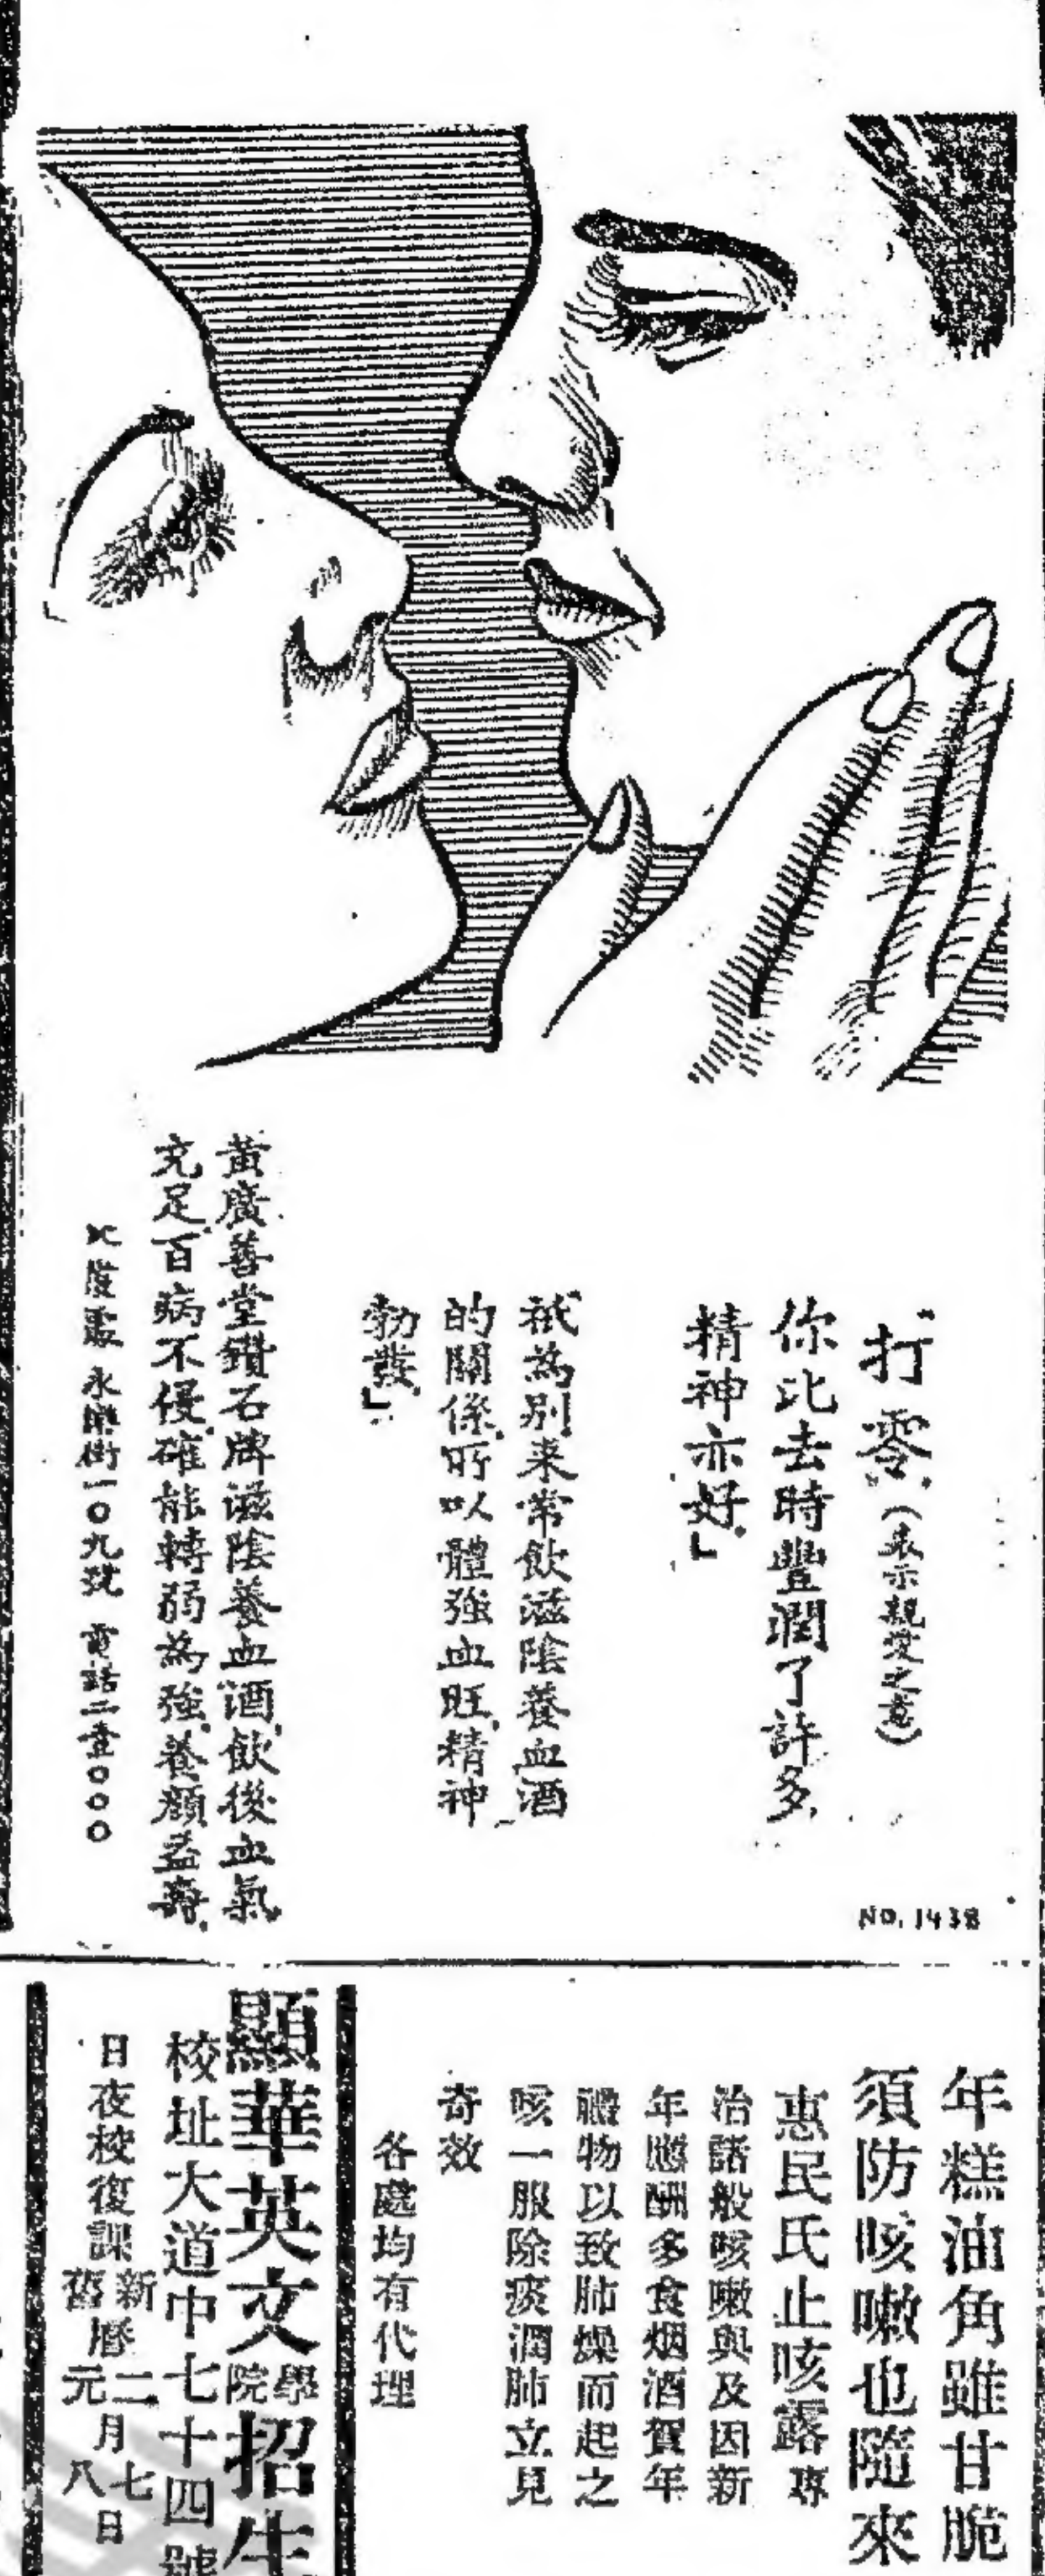 「打零」（表示親愛之意）
你比去時豐潤了許多
精神亦好」
祇為別来常飲滋陰養血酒
的關係所以體強血旺精神
勃發」
黃廣善堂鑽石牌滋陰養血酒飲後血氣
充足百病不侵確能轉弱為強養顏益壽
永樂街一〇九號 電話二壹〇〇〇
NO. 1438
年糕油角雖甘脆
須防咳嗽也隨來
惠民氏止咳露專
治諸般咳嗽與及因新
年應酬多食烟酒賀年
物以致肺燥而起之
咳一服除痰潤肺立見
奇效
各處均有代理
顯華英文學院招生
校址大道中七十四號
日夜校復課新曆二月七日
舊元八